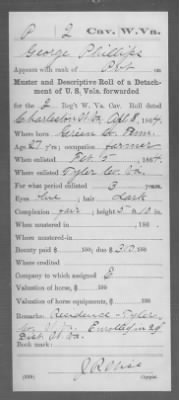 P 2 Cav. W. Va.
George Phillips
Appears with rank of Pvt on
Muster and Descriptive Roll of a Detach-
ment of U. S. Vols. forwarded
for the 2 Reg't W. Va. Cav. Roll dated
Charleston W. Va. Oct 8, 1864.
Where born Green Co. Penn.
Age 27 y'rs; occupation farmer
When enlisted Feb. 15, 1864.
Where enlisted Tyler Co. Va.
For what period enlisted 3 years.
Eyes blue; hair dark
Complexion fair; height 5 ft. 10 in.
When mustered in , 186 .
Where mustered in
Bounty paid $ 100; due $ 100
Where credited
Company to which assigned E
Valuation of horse, $ 100
Valuation of horse equipments, $ 100
Remarks: Residence - Tyler
Co. Enrolled in 2d
Dist. W. Va.
Book mark:
(339) Copyist.